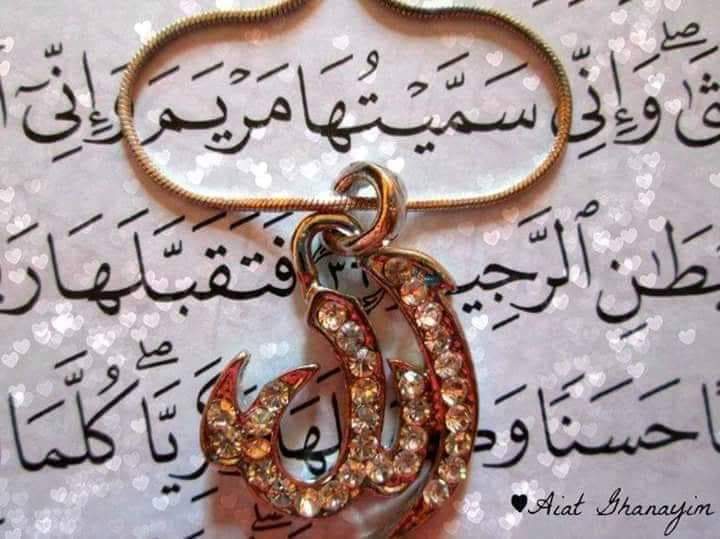 ثَىٰ ۖ وَإِنِّى سَمَّيْتُهَا مَرْيَمَ وَإِنِّىٓ
ٱلرَّجِيمِ ٣٦ فَتَقَبَّلَهَا
حَسَنًا زَكَرِيَّا ۖ كُلَّمَا
الله
♥Aiat Ghanayim